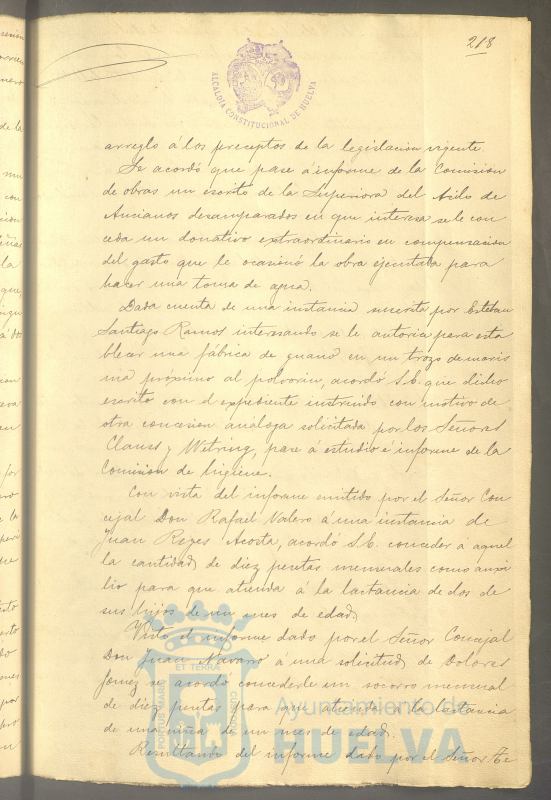 218
ALCALDIA CONSTITUCIONAL DE HUELVA
arreglo á los preceptos de la legislacion vigente.
Se acordó que pase á informe de la Comision
de obras un escrito de la Superiora del Asilo de
Ancianos desamparados en que interesa se le con
ceda un donativo extraordinario en compensacion
del gasto que le ocasionó la obra ejecutada para
hacer una toma de agua.
Dada cuenta de una instancia suscrita por Esteban
Santiago Ramos interesando se le autorice para esta
blecer una fábrica de guano en un trozo de maris
ma próximo al polvorin, acordó S.E. que dicho
escrito con el expediente instruido con motivo de
otra concesion análoga solicitada por los Señores
Clauss y Wetring, pase á estudio é informe de la
Comision de higiene.
Con vista del informe emitido por el Señor Con
cejal Don Rafael Valero á una instancia de
Juan Reyes Acosta, acordó S.E. conceder á aquel
la cantidad de diez pesetas mensuales como auxi
lio para que atienda á la lactancia de dos de
sus hijos de un mes de edad.
Visto el informe dado por el Señor Concejal
Don Juan Navarro á una solicitud de Dolores
Gomez se acordó concederle un socorro mensual
de diez pesetas para que atienda á la lactancia
de una niña de un mes de edad.
Resultando del informe dado por el Señor Te
PORTUS MARIS
ET TERRAE
CUSTODIA
Ayuntamiento de
HUELVA